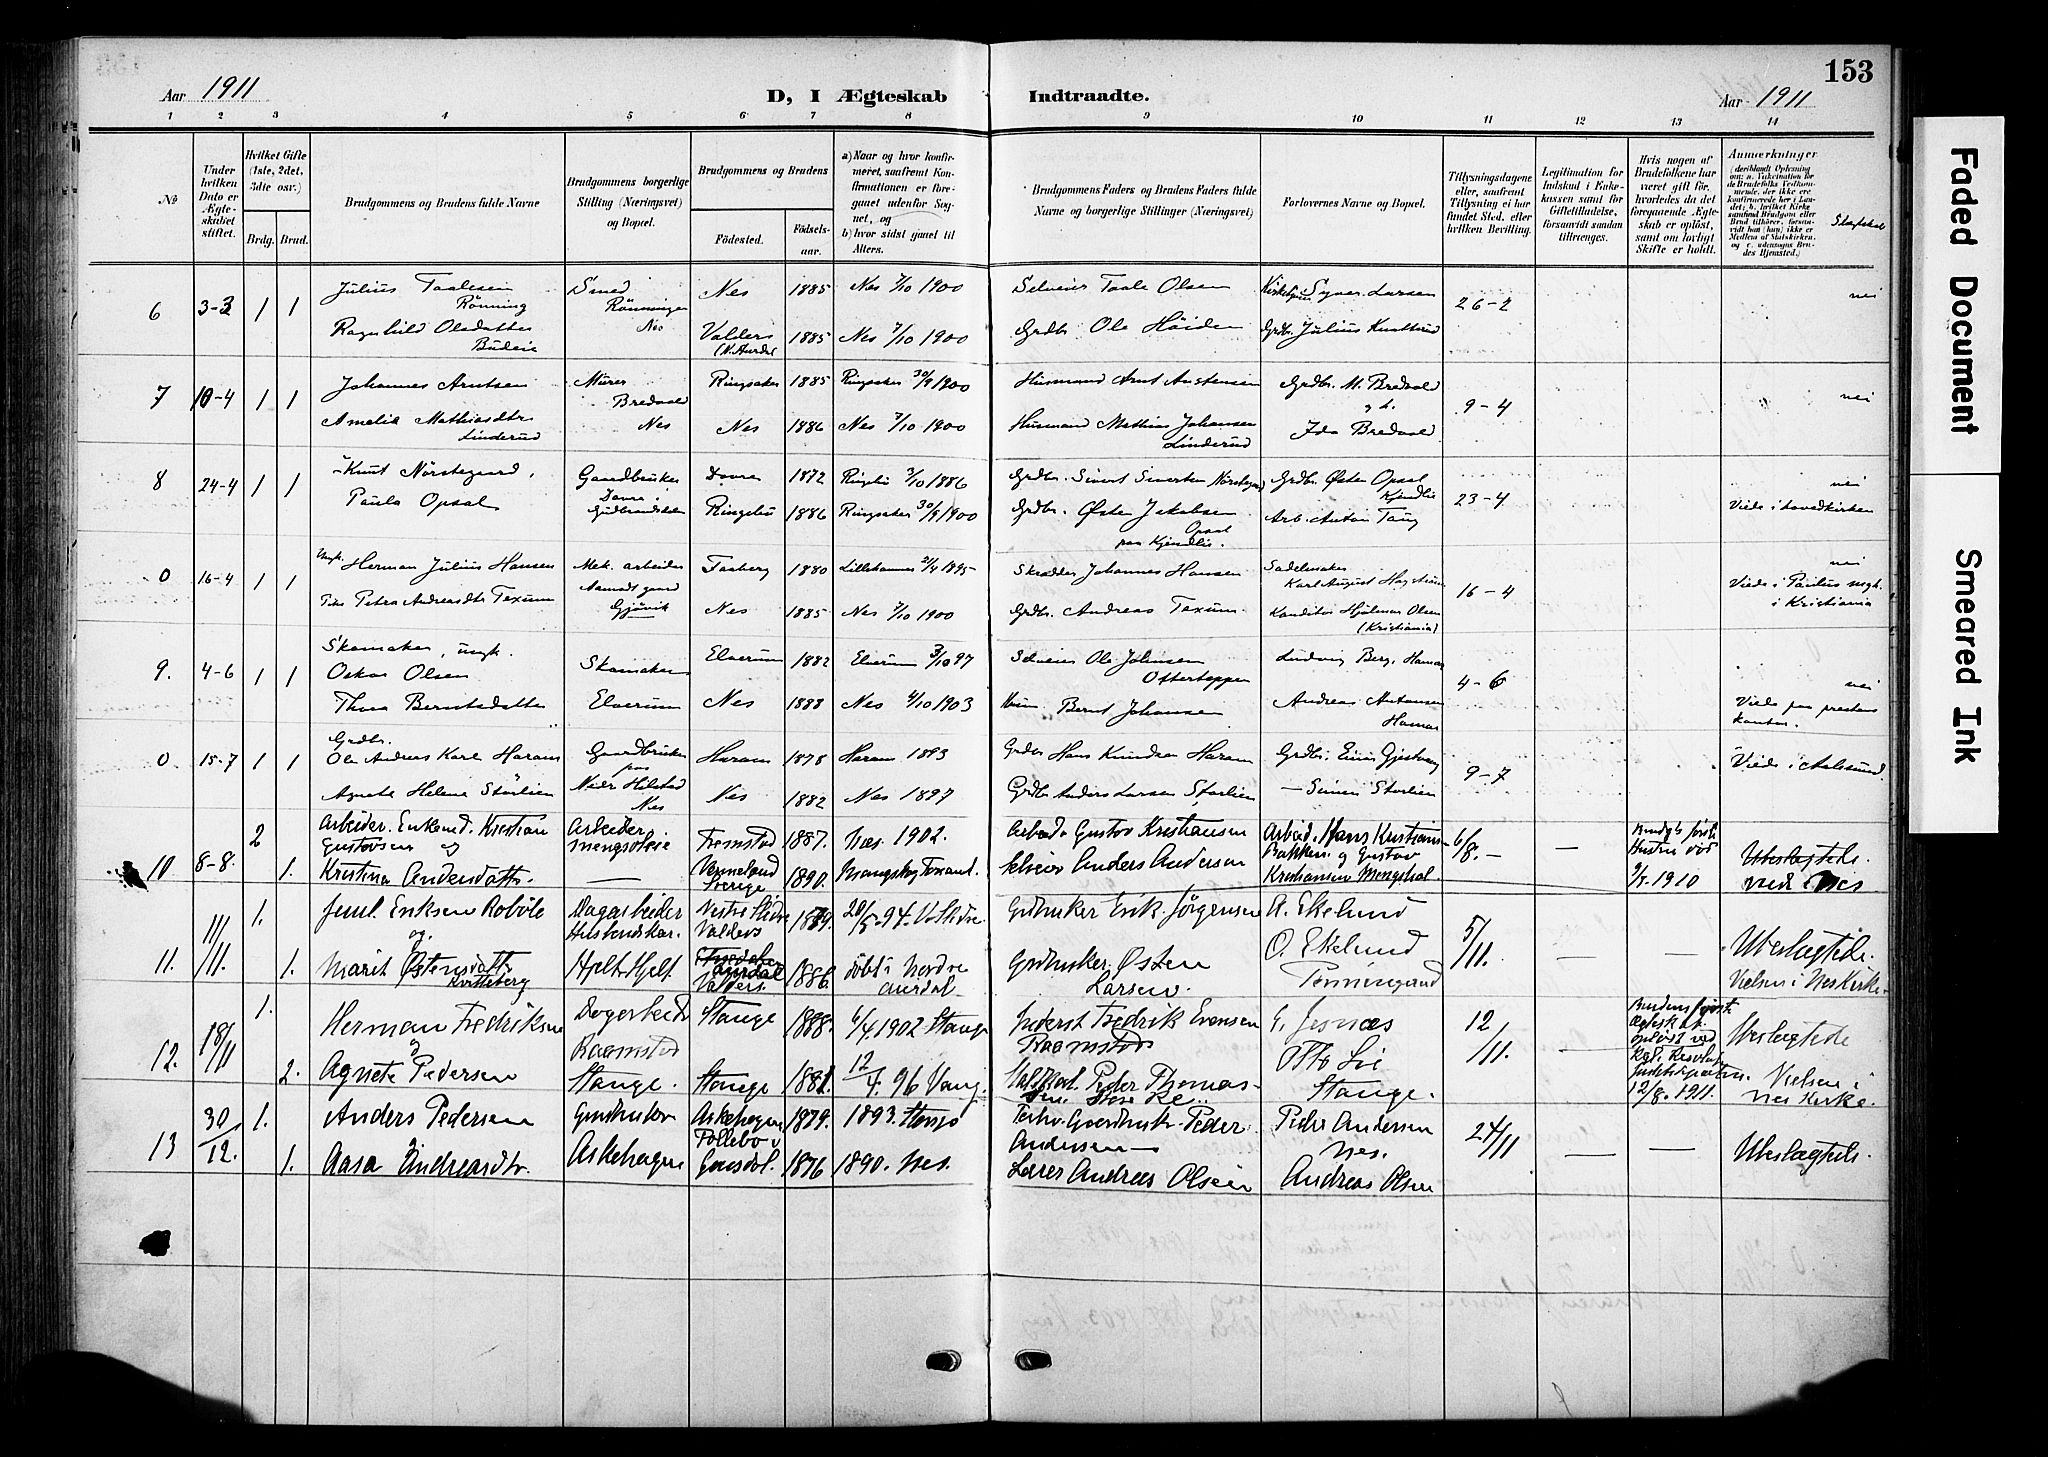 153
Aar 1911
D, I Ægteskab Indtraadte.
Aar 1911
1 2 3 4 5 6 7 8 9 10 11 12 13 14
№
Under hvilken Dato er Ægteskabet stiftet.
Hvilket Gifte (1ste, 2det, 3die osv.)
Brdg. Brud.
Brudgommens og Brudens fulde Navne
Brudgommens borgerlige Stilling (Næringsvei) og Bopæl.
Brudgommens og Brudens
Fødested. Fødselsaar.
a) Naar og hvor konfirmeret, saafremt Konfirmationen er foregaaet udenfor Sognet, og
b) hvor sidst gaaet til Alters.
Brudgommens Faders og Brudens Faders fulde Navne og borgerlige Stillinger (Næringsvei)
Forlovernes Navne og Bopæl.
Tillysningsdagene eller, saafremt Tillysning ei har fundet Sted, efter hvilken Bevilling.
Legitimation for Indskud i Enkekassen samt for Giftetilladelse, forsaavidt saadan tiltrænges.
Hvis nogen af Brudefolkene har været gift før, hvorledes da det foregaaende Ægteskab er opløst, samt om lovligt Skifte er holdt.
Anmærkninger
Slægtskab
6 3-3 1 1
Julius Taalesen Rönning
Smed Rönningen Nes
Nes 1885 Nes 7/10 1900
Selveier Taale Olsen
Syver Larsen
26-2
nei
Ragnhild Olsdatter Budeie
Valders 1885 Nes 7/10 1900
Grdbr. Ole Höiden
Grdbr. Julius Knutsrud
7 10-4 1 1
Johannes Arntsen
Murer Bredvold Nes
Ringsaker 1885 Ringsaker 30/9 1900
Husmand Arnt Austensen
Grdbr. M. Bredvold
9-4
nei
Amelia Mathiasdtr Linderud
Nes 1886 Nes 7/10 1900
Husmand Mathias Johansen Linderud
Ida Bredvold
8 24-4 1 1
Knut Nörstegaard
Gaardbruker Dovre i Gudbrandsdalen
Dovre 1872 Ringebu 3/10 1886
Grdbr. Sivert Sivertsen Nörstegaard
Grdbr. Østen Opsal Kjendlie
23-4
nei
Viede i hovedkirken
Paula Opsal
Ringebu 1886 Ringsaker 30/9 1900
Grdbr. Østen Jakobsen Opsal paa Kjendlie.
Arb. Anton Tang
0 16-4 1 1
Ungk. Herman Julius Hansen
Mek. arbeider
Gjøvik
Faaberg 1880 Lillehammer 21/4 1895
Skrædder Johannes Hansen
Sadelmaker Karl August Hagström
16-4
nei
Viede i Paulus mgh. i Kristiania
Pike Petra Andreasdtr Texum
Nes 1885 Nes 7/10 1900
Grdbr. Andreas Texum
Konditor Hjalmar Olsen (Kristiania)
9. 4-6 1 1
Skomaker, ungk. Oskar Olsen
Skomaker Elverum
Elverum 1882 Elverum 3/10 97
Selveier Ole Johnsen
Ludvig Berg, Hamar
4-6
nei
Viede paa prestens kontor.
Thora Berntsdatter
Nes 1888 Nes 4/10 1903
Bernt Johansen
Andreas Antonsen Hamar
0 15-7 1 1
Grdbr. Ole Andreas Karl Harams
Gaardbruker paa Nedr Hilstad Nes
Haram 1878 Haram 1893
Grdbr Hans Knudsen Haram
Grdbr. Einar Gjestvang
9-7
Viede i Aalesund.
Agnete Helene Störlien
Nes 1882 Nes 1897
Grdbr Anders Larsen Storlien
— Simen Storlien
10 8-8. 2 1.
Arbeider. Enkemd. Kristian Gustavsen og
Arbeider
Fremstad 1887. Næs. 1902.
Arbeid. Gustav Kristiansen
Arbeid. Hans Kristians. Bakken. og Gustav Kristiansen
6/8. —
Brudgs første Hustru død 9/5. 1910
Ubeslægtede. viede i Nes
Kristina Andersdatter
—
Vermeland Sverige 1890.
Selveier Anders Andersen
11. 11/11. 1. 1.
Juul. Eriksen Robøle og
Dagarbeider
Vestre Slidre Valders 1879. 20/5. 94. V. Slidre
Grdbruker Erik Jørgensen
A. Ekelund
5/11.
—
Ubeslægtede. Vielsen i Nes Kirke
Marit Østensdatter Kvitteberg
Aurdal Valders. 1886 døbt i Nordre Aurdal
Grdbruker. Østen Larsen.
O. Ekelund
12. 18/11 1. 2.
Herman Fredriksen og
Dagarbeider Raamstad
Stange 1888. 6/4 1902 Stange
Inderst Fredrik Evensen Raamstad
E. Jesnæs
12/11.
Brudens første ægtesk. bl. opløst ved Kgl. Resolut. Justitsdeparten. 12/8. 1911.
Ubeslægtede Vielsen i Nes Kirke.
Agnete Pedersen
Stange. Stange 1881 12/4. 96 Vang.
Peder Thomassen
Otto Lie Stange.
13 30/12. 1. 1.
Anders Pedersen
Gardbruker Askehagen
Askehagen 1879. 1893. Stange
Gaardbruk. Peder Andersen —
Peder Andersen Nes.
24/11 — —
Ubeslægtede.
Aasa Andreasdtr.
Gausdal. 1876 1890. Nes.
Lærer Andreas Olsen
Andreas Olsen
Faded Document
Smeared Ink